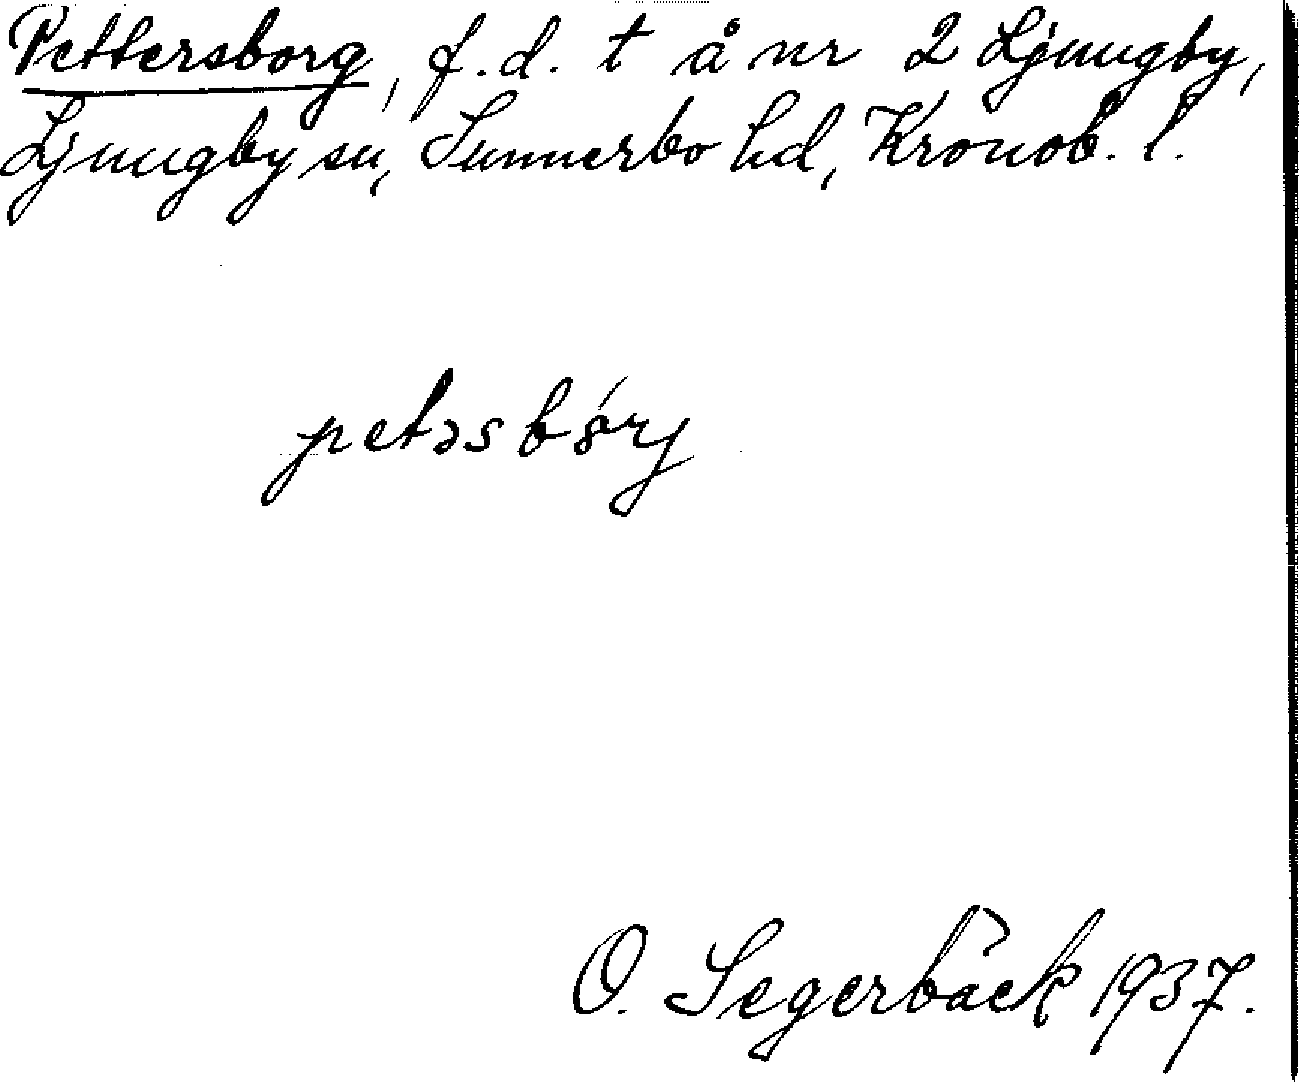 Pettersborg, f.d. t å nr 2 Ljungby,
Ljungby sn, Sunnerbo hd, Kronob. l.
petəsbǿrj
O. Segerbäck 1937.